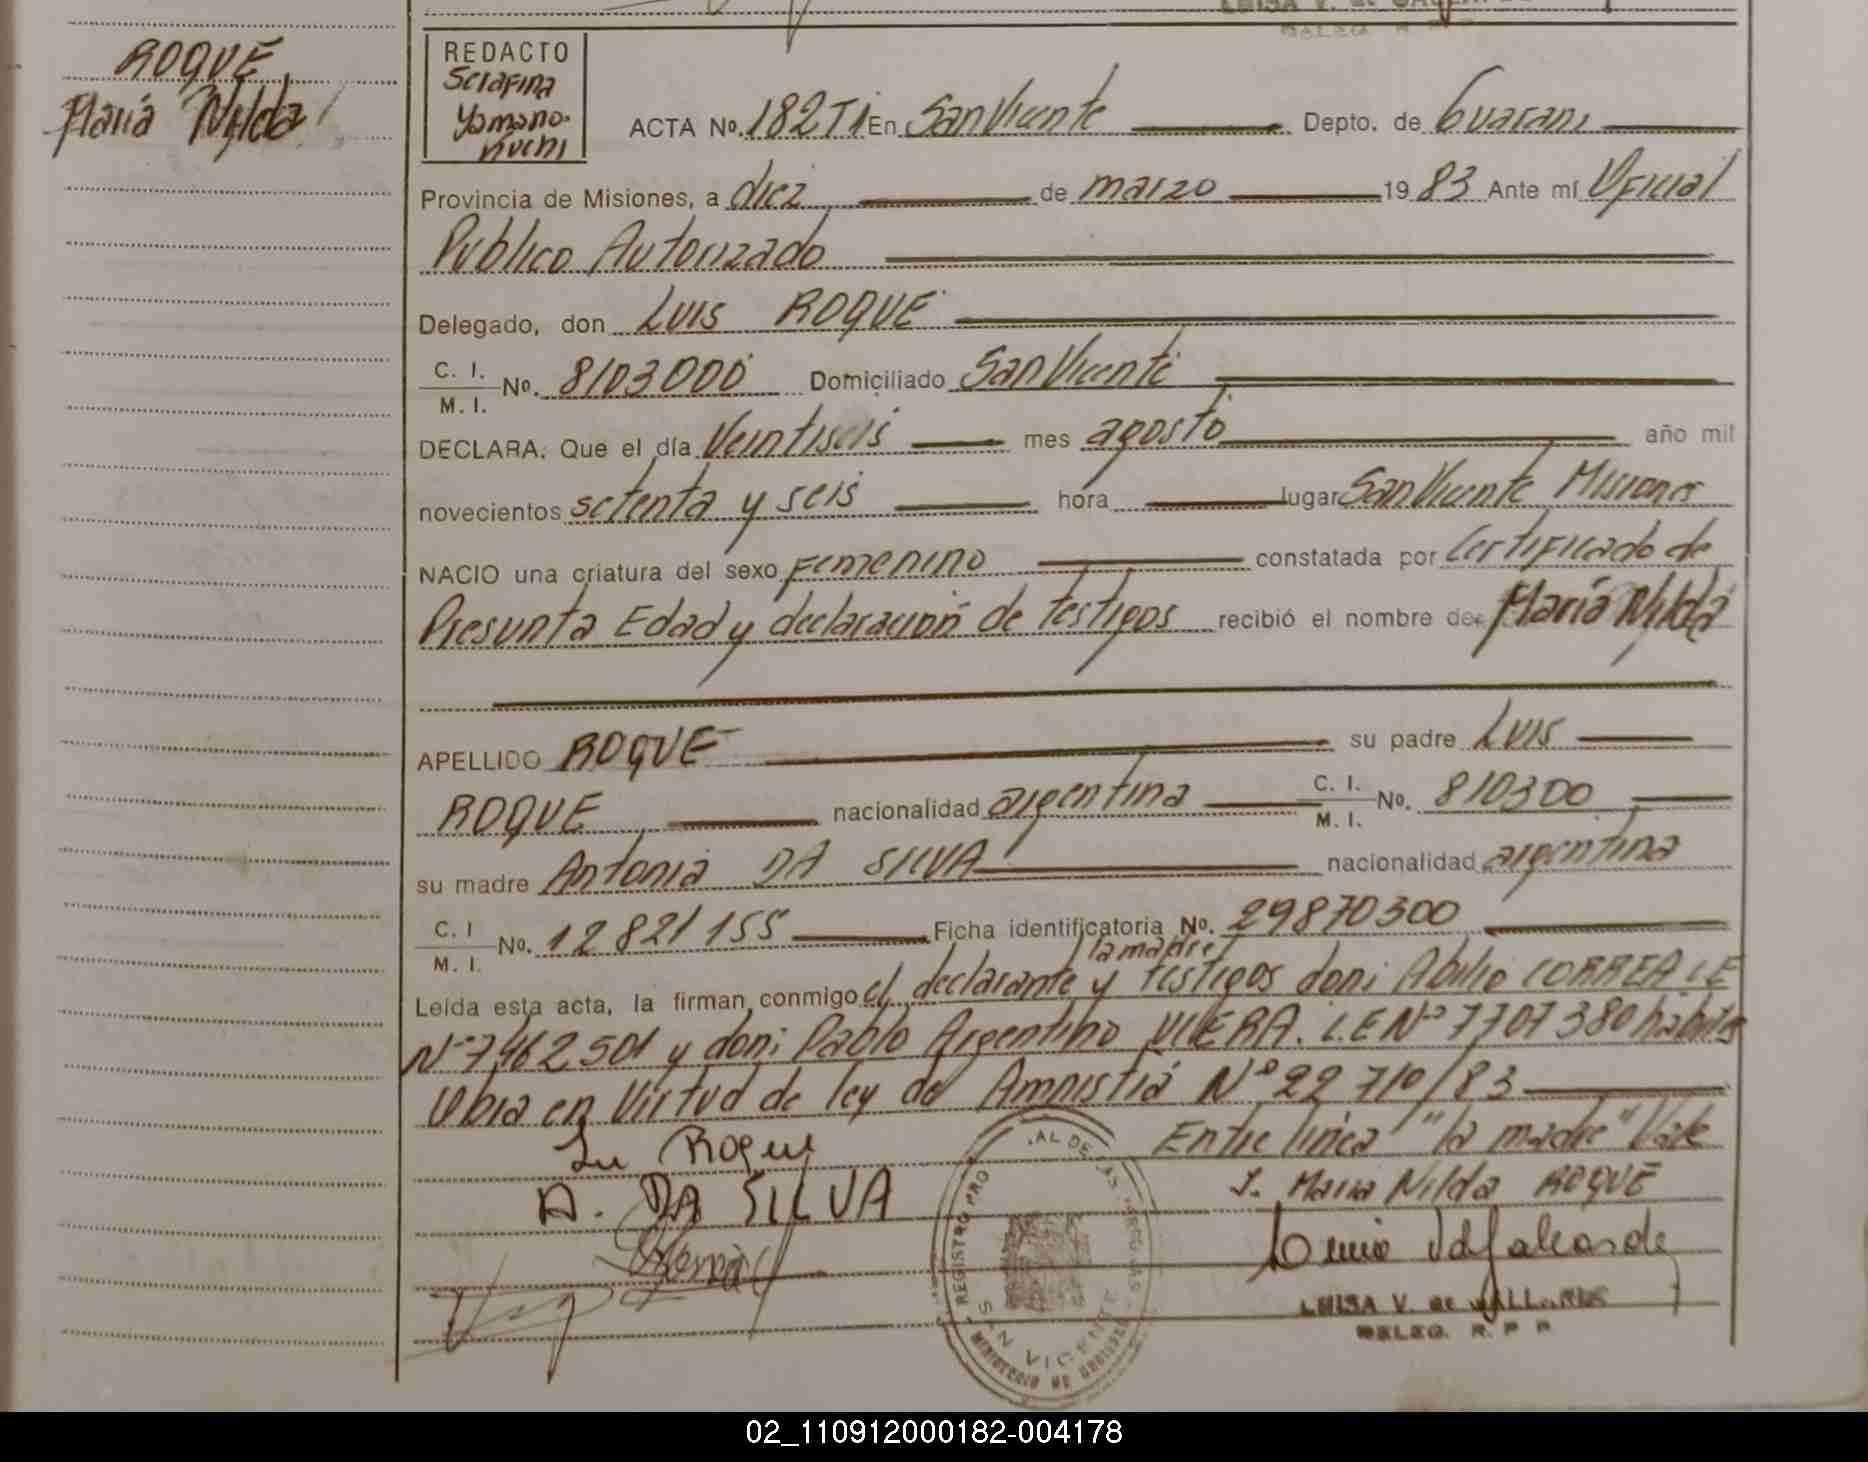 ROQUE
María Nylda
REDACTO
Serafina
Yamano-
huchi
ACTA No. 182TI En San Vicente Depto. de Guarani
Provincia de Misiones, a diez de marzo 1983 Ante mí Oficial
Publico Autorizado
Delegado, don Luis ROQUE
C. I.
M. I. No. 8103000 Domiciliado San Vicente
DECLARA: Que el día Veintiseis mes agosto año mil
novecientos setenta y seis hora lugar San Vicente Misiones
NACIO una criatura del sexo femenino constatada por Certificado de
Presunta Edad y declaración de testigos recibió el nombre de: María Nylda
APELLIDO ROQUE su padre Luis
ROQUE nacionalidad argentina C. I. M. I. No. 810300
su madre Antonia DA SILVA nacionalidad argentina
C. I M. I. No. 12821155 Ficha identificatoria No. 29870300
la madre
Leída esta acta, la firman conmigo el declarante y testigos don: Abilio CORREA LE
Nº7462501 y don: Pablo Argentino VIERA. L.E Nº 7707380
Obra en Virtud de ley de Amnistiá Nº 22 710/83
Entre linea "la madre" Vale
Lu Roque
I. Maria Nilda ROQUE
A. DA SILVA
REGISTRO PRO AL DE LAS PERSONAS
SAN VICENTE
LUISA V. de GALLARDE
DELEG. R. P. P.
02_110912000182-004178